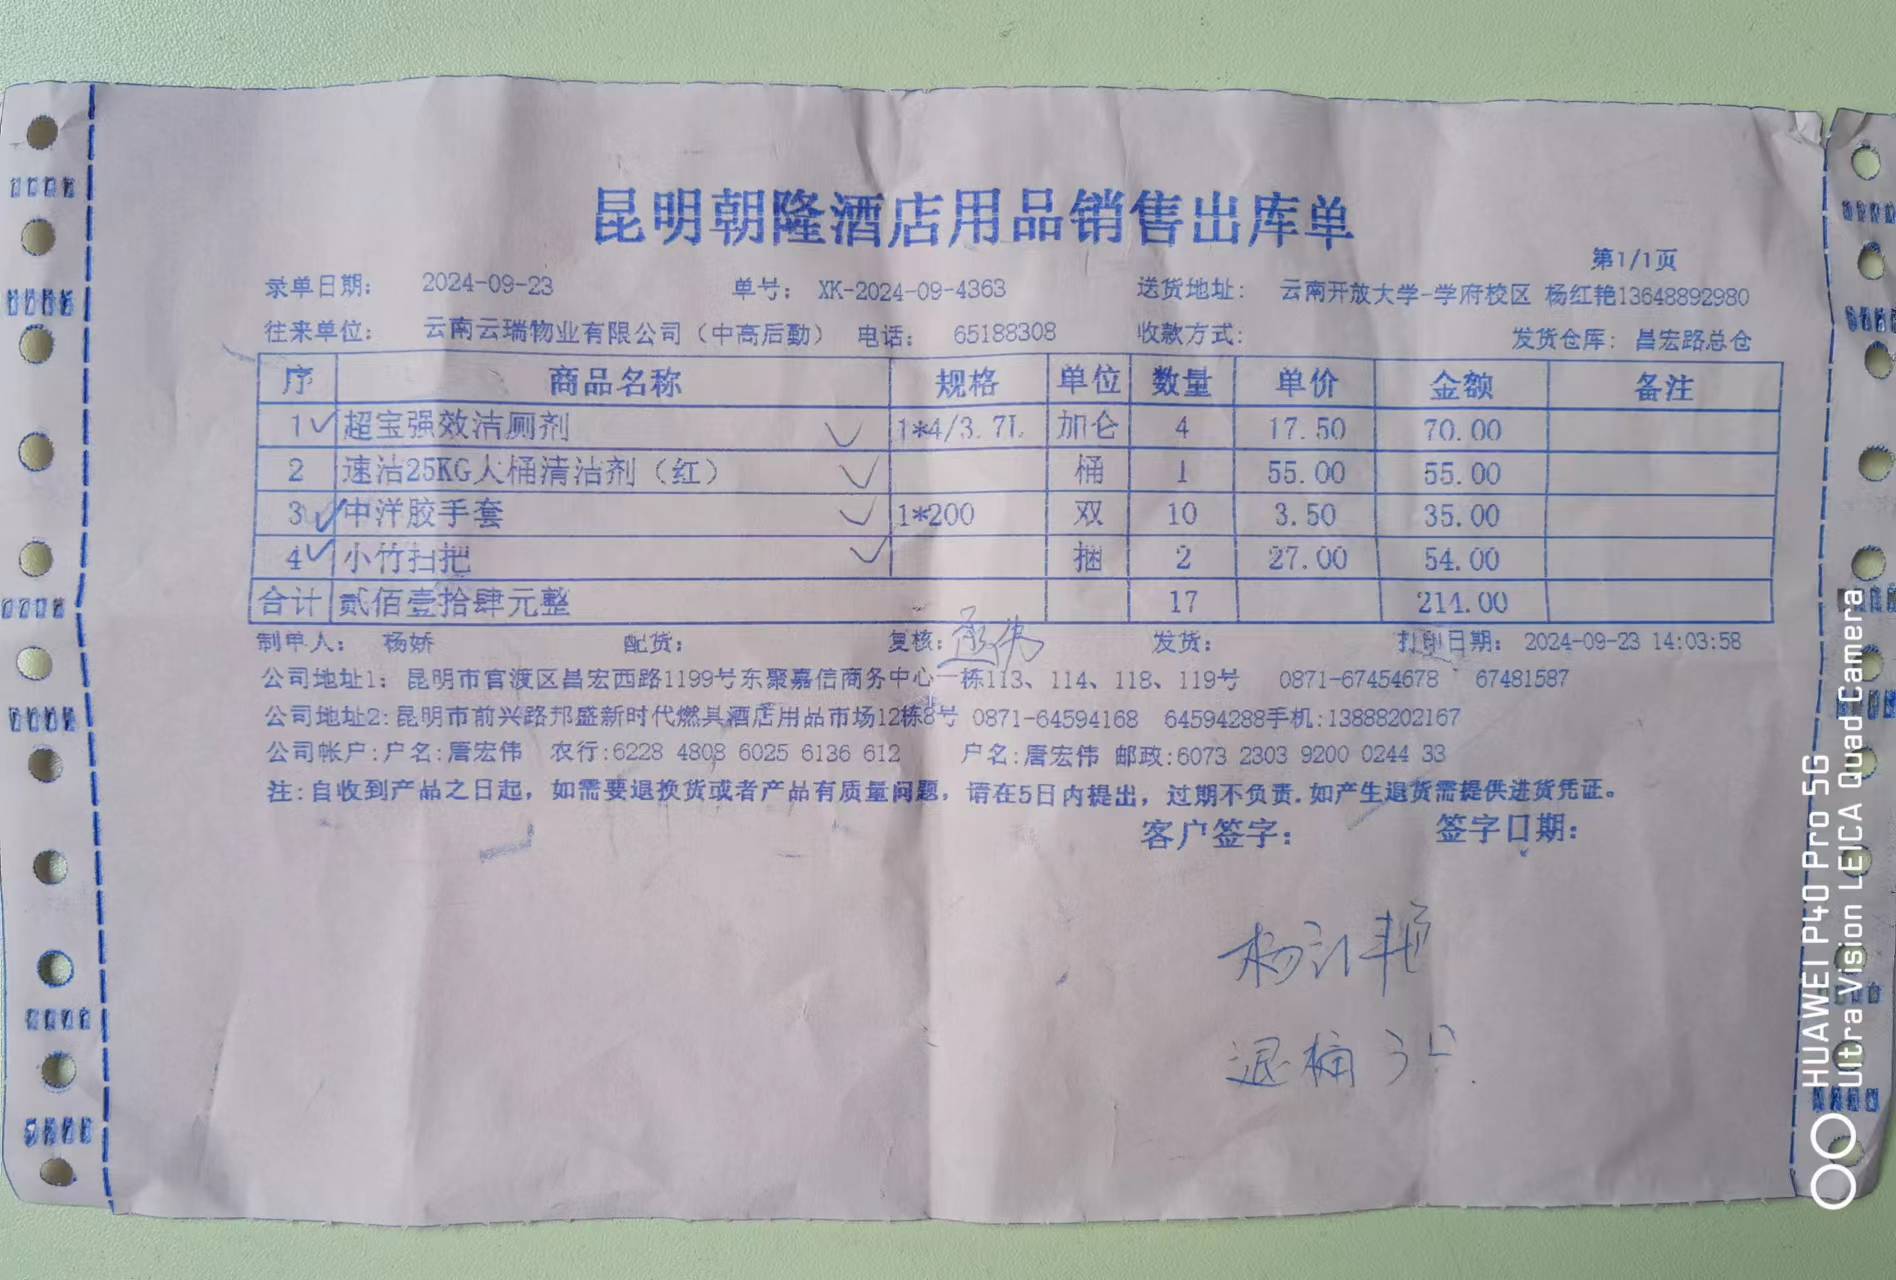 昆明朝隆酒店用品销售出库单
第1/1页
录单日期: 2024-09-23 单号: XK-2024-09-4363 送货地址: 云南开放大学-学府校区 杨红艳13648892980
往来单位: 云南云瑞物业有限公司（中高后勤） 电话: 65188308 收款方式: 发货仓库: 昌宏路总仓
序 商品名称 规格 单位 数量 单价 金额 备注
1 超宝强效洁厕剂 1*4/3.7L 加仑 4 17.50 70.00
2 速洁25KG大桶清洁剂（红） 桶 1 55.00 55.00
3 中洋胶手套 1*200 双 10 3.50 35.00
4 小竹扫把 捆 2 27.00 54.00
合计 贰佰壹拾肆元整 17 214.00
制单人: 杨娇 配货: 复核: 发货: 打印日期: 2024-09-23 14:03:58
公司地址1: 昆明市官渡区昌宏西路1199号东聚嘉信商务中心一栋113、114、118、119号 0871-67454678 67481587
公司地址2:昆明市前兴路邦盛新时代燃具酒店用品市场12栋8号 0871-64594168 64594288手机:13888202167
公司帐户:户名:唐宏伟 农行:6228 4808 6025 6136 612 户名:唐宏伟 邮政:6073 2303 9200 0244 33
注:自收到产品之日起，如需要退换货或者产品有质量问题，请在5日内提出，过期不负责.如产生退货需提供进货凭证。
客户签字: 签字日期:
杨红艳
退桶3只.
HUAWEI P40 Pro 5G
Ultra Vision LEICA Quad Camera